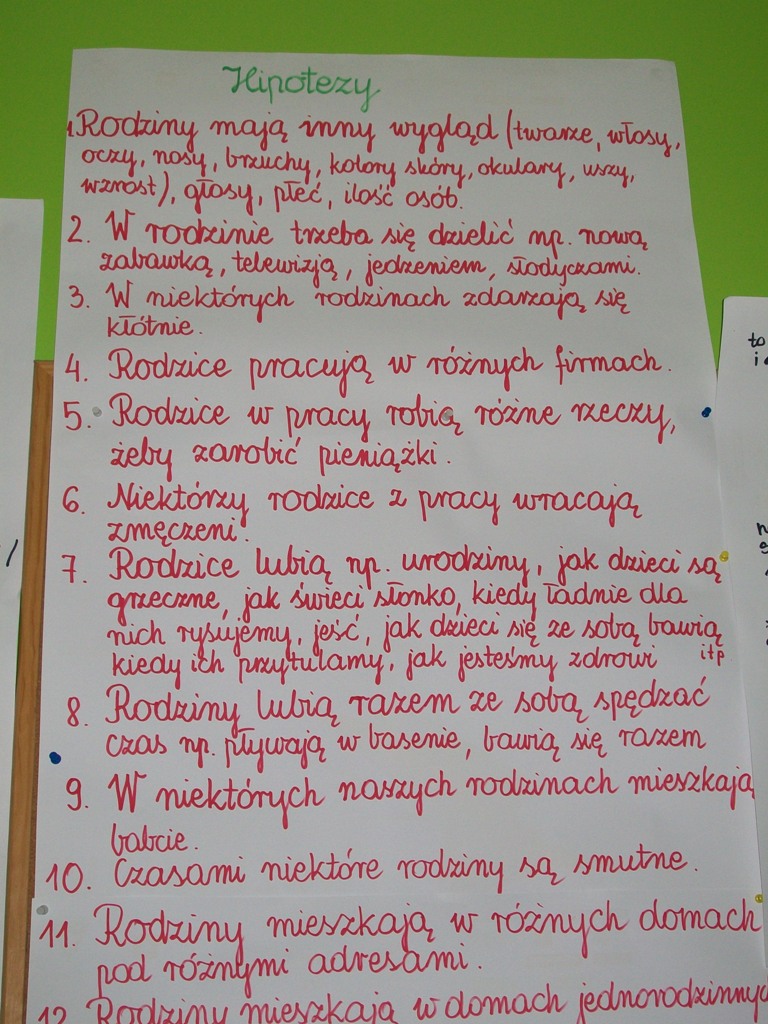 Hipotezy
1. Rodziny mają inny wygląd (twarze, włosy,
oczy, nosy, brzuchy, kolory skóry, okulary, uszy,
wzrost), głosy, płeć, ilość osób.
2. W rodzinie trzeba się dzielić np. nową
zabawką, telewizją, jedzeniem, słodyczami.
3. W niektórych rodzinach zdarzają się
kłótnie.
4. Rodzice pracują w różnych firmach.
5. Rodzice w pracy robią różne rzeczy,
żeby zarobić pieniążki.
6. Niektórzy rodzice z pracy wracają
zmęczeni.
7. Rodzice lubią np. urodziny, jak dzieci są
grzeczne, jak świeci słonko, kiedy ładnie dla
nich rysujemy, jeść, jak dzieci się ze sobą bawią
kiedy ich przytulamy, jak jesteśmy zdrowi itp
8. Rodziny lubią razem ze sobą spędzać
czas np. pływają w basenie, bawią się razem
9. W niektórych naszych rodzinach mieszkają
babcie.
10. Czasami niektóre rodziny są smutne.
11. Rodziny mieszkają w różnych domach
pod różnymi adresami.
12. Rodziny mieszkają w domach jednorodzinnyc
to